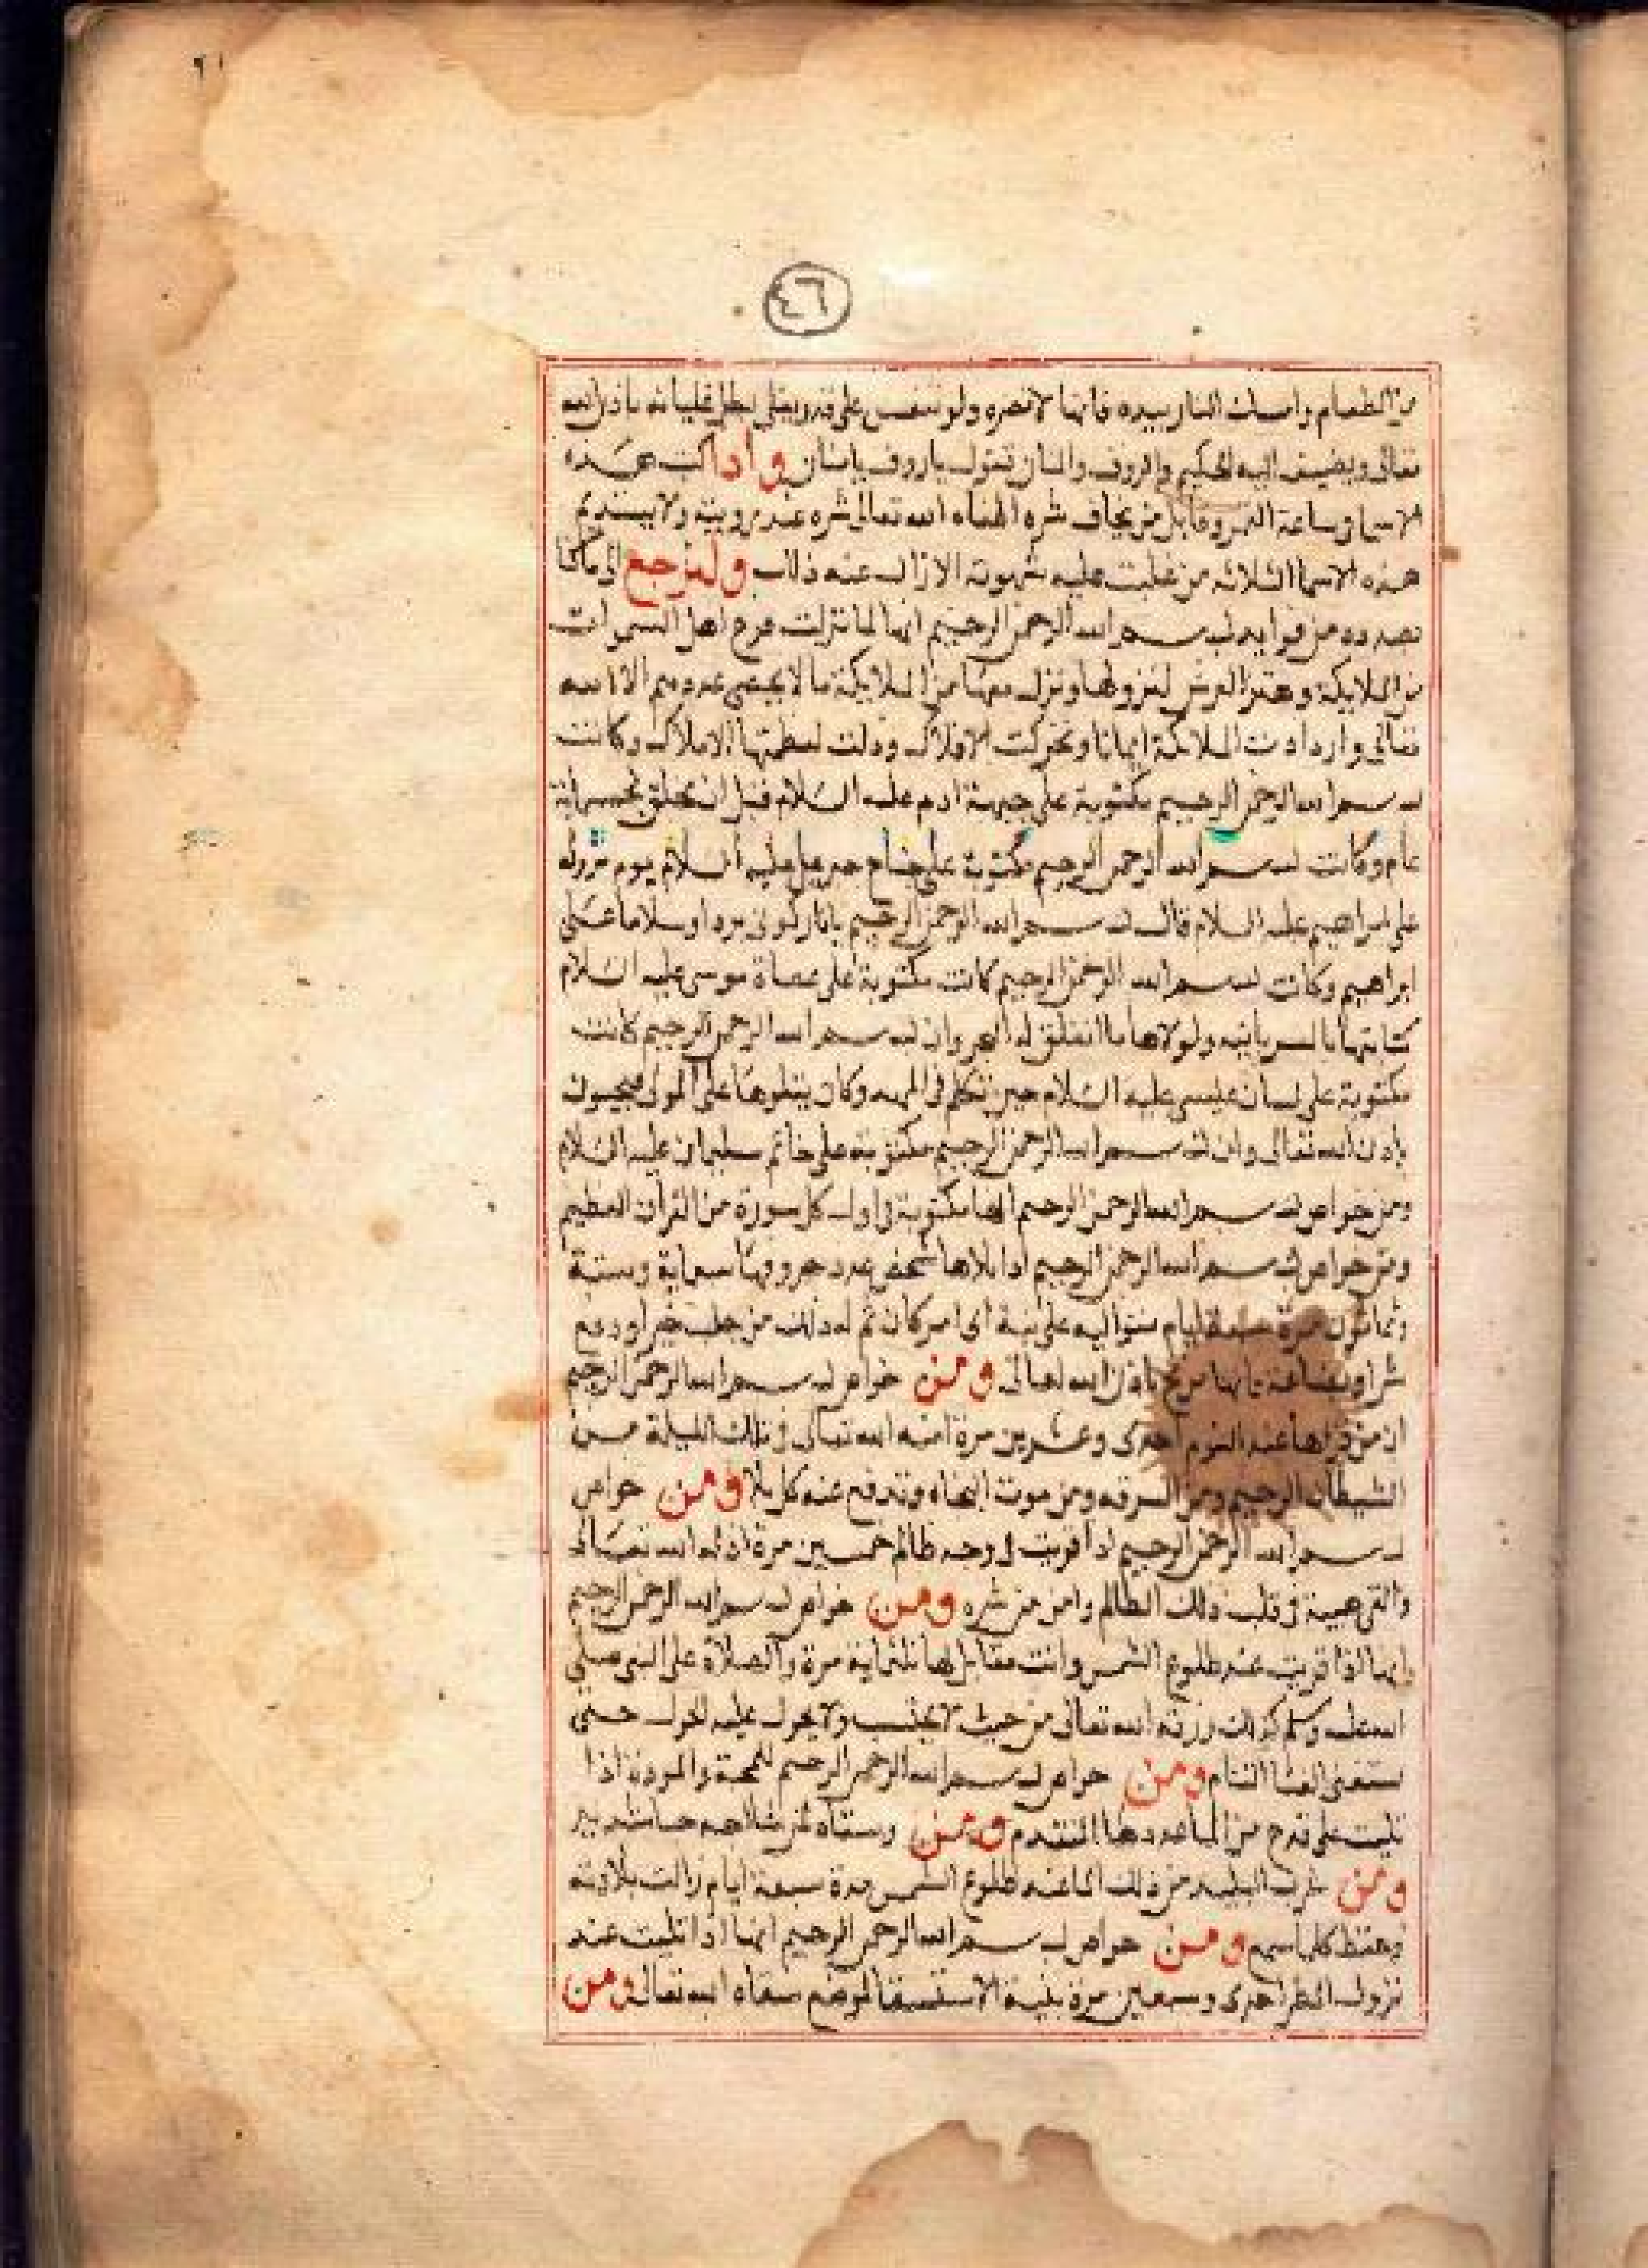 ٤٦
من الطعام وامسك النار بيده فانها لا تضره ولو تنفس على قدر يغلي بطل غليانه باذن الله
تعالى ويضيف اليه الحكيم والروف والمنان تقول ياروف يامنان واذا كتب هذه
الاسما في ساعة القمر وقابل من يخاف شره اكفاه الله تعالى شره عند رويته ولا يستديم
هذه الاسما الثلاثه من غلبت عليه شهوته الا زال عنه ذلك ولنرجع الى ما كنا
بصدده من فوايد بسم الله الرحمن الرحيم انها لما نزلت فرح اهل السموات
من الملايكة واهتز العرش لنزولها ونزل معها من الملايكة ما لا يحصى عددهم الا الله
تعالى وازدادت الملائكة ايمانا وتحركت الافلاك وذلت لعظمتها الاملاك وكانت
بسم الله الرحمن الرحيم مكتوبة على جبهة ادم عليه السلام قبل ان يخلق بخمسماية
عام وكانت بسم الله الرحمن الرحيم مكتوبة على جناح جبريل عليه السلام يوم نزوله
على ابراهيم عليه السلام قال بسم الله الرحمن الرحيم يانار كوني بردا وسلاما على
ابراهيم وكانت بسم الله الرحمن الرحيم كانت مكتوبة على عصاة موسى عليه السلام
كتابتها بالسريانيه ولولاها ما انفلق له البحر وان بسم الله الرحمن الرحيم كانت
مكتوبة على لسان عيسى عليه السلام حين تكلم في المهد وكان يتلوها على الموتى فيحيون
باذن الله تعالى وان بسم الله الرحمن الرحيم مكتوبة على خاتم سليمان عليه السلام
ومن خواص بسم الله الرحمن الرحيم انها مكتوبة في اول كل سورة من القران العظيم
ومن خواص بسم الله الرحمن الرحيم اذا تلاها شخص عدد حروفها سبعماية وستة
وثمانون مرة سبعة ايام متواليه على نية اي امر كان تم له ذلك من جلب خير او دفع
شر او بضاعة فانها تربح باذن الله تعالى ومن خواص بسم الله الرحمن الرحيم
ان من قراها عند النوم احدى وعشرين مرة امنه الله تعالى في تلك الليلة من
الشيطان الرجيم ومن السرقه ومن موت الفجاه وتدفع عنه كل بلا ومن خواص
بسم الله الرحمن الرحيم اذا قريت في وجه ظالم خمسين مرة اذله الله تعالى
والقى هيبة في قلب ذلك الظالم وامن من شره ومن خواص بسم الله الرحمن الرحيم
انها اذا قريت عند طلوع الشمس وانت مقابلها ثلثماية مرة والصلاة على النبي صلى
الله عليه وسلم كذلك رزقه الله تعالى من حيث لا يحتسب ولا يحول عليه الحول حتى
يستغني الغنا التام ومن خواص بسم الله الرحمن الرحيم للمحبة والمودة اذا
تليت على قدح من الما عددها المتقدم ومن وسقاه لمن شا احبه حبا شديد
ومن شرب البليد من ذلك الما عند طلوع الشمس مدة سبعة ايام زالت بلادته
وحفظ كلما سمع ومن خواص بسم الله الرحمن الرحيم انها اذا تليت عند
نزول المطر احدى وسبعين مرة بنية الاستسقا لموضع سقاه الله تعالى ومن